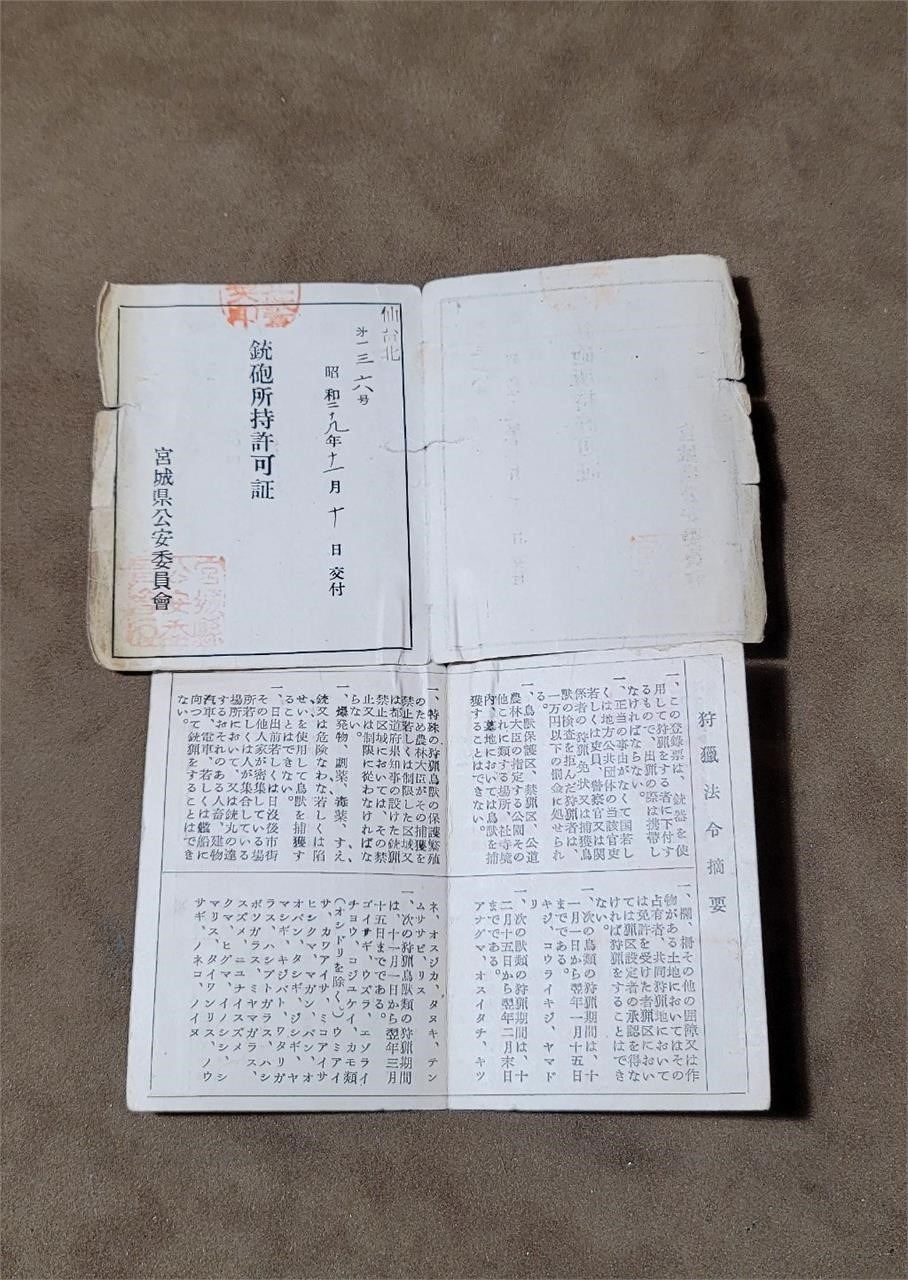 仙台北
第一三六号
昭和二十九年十一月十日交付
銃砲所持許可証
宮城県公安委員會
宮城縣公安委員會印
狩獵法令摘要
一、この登録票は、銃器を使
用して狩猟をする者に下付す
るもので、出猟の際は携帯し
なければならない。
一、正当の事由がなくて国若し
くは地方公共団体の当該官吏
若しくは吏員、警察官又は関
係者の狩猟免状又は捕獲鳥
獣の検査を拒んだ狩猟者は、
一万円以下の罰金に処せられ
る。
一、鳥獣保護区、禁猟区、公道
農林大臣の指定する公園その
他これに類する場所、社寺境
内、墓地においては鳥獣を捕
獲することはできない。
一、特殊の狩猟鳥獣の保護繁殖
のため農林大臣がその捕獲を
禁止若しくは制限した区域又
は都道府県知事の設けた銃猟
禁止区域においては、その禁
止又は制限に従わなければな
らない。
一、爆発物、劇薬、毒薬、すえ
銃又は危険なわな若しくは陥
せいを使用して鳥獣を捕獲す
ることはできない。
一、日出前若しくは日没後市街
その他人家が密集している場
所若しくは人が集合している
場所において、又は銃丸の達
するおそれのある人畜、建物
汽車、電車、若しくは艦船に
向つて銃猟をすることはでき
ない。
一、欄、柵その他の囲障又は作
物がある土地においてはその
占有者、共同狩猟地において
は免許を受けた者猟区におい
ては猟区設定者の承認を得な
ければ狩猟をすることはでき
ない。
一、次の鳥類の狩猟期間は、十
一月一日から翌年一月十五日
までである。
キジ、コウライキジ、ヤマド
リ
一、次の獣類の狩猟期間は、十
二月十五日から翌年二月末日
までである。
アナグマ、オスイタチ、キツ
ネ、オスジカ、タヌキ、テン
ムササビ、リス
一、次の狩猟鳥獣類の狩猟期間
は、十一月一日から翌年三月
十五日までである。
ゴイサギ、ウズラ、エゾライ
チョウ、コジユケイ、カモ類
(オシドリを除く)ウミアイ
サ、カワアイサ、ミコアイサ
ヒシクマ、マガン、バン、オ
オバン、タシギ、ジシギ、ヤ
マシギ、キジバト、ワタリガ
ラス、ハシブトガラス、ハシ
ボソガラス、ミヤマガラス、
スズメ、ニユウナイスズメ、
クマス、ヒグマ、イノシシ、シ
マリス、タイワンリス、ノウ
サギ、ノネコ、ノイヌ